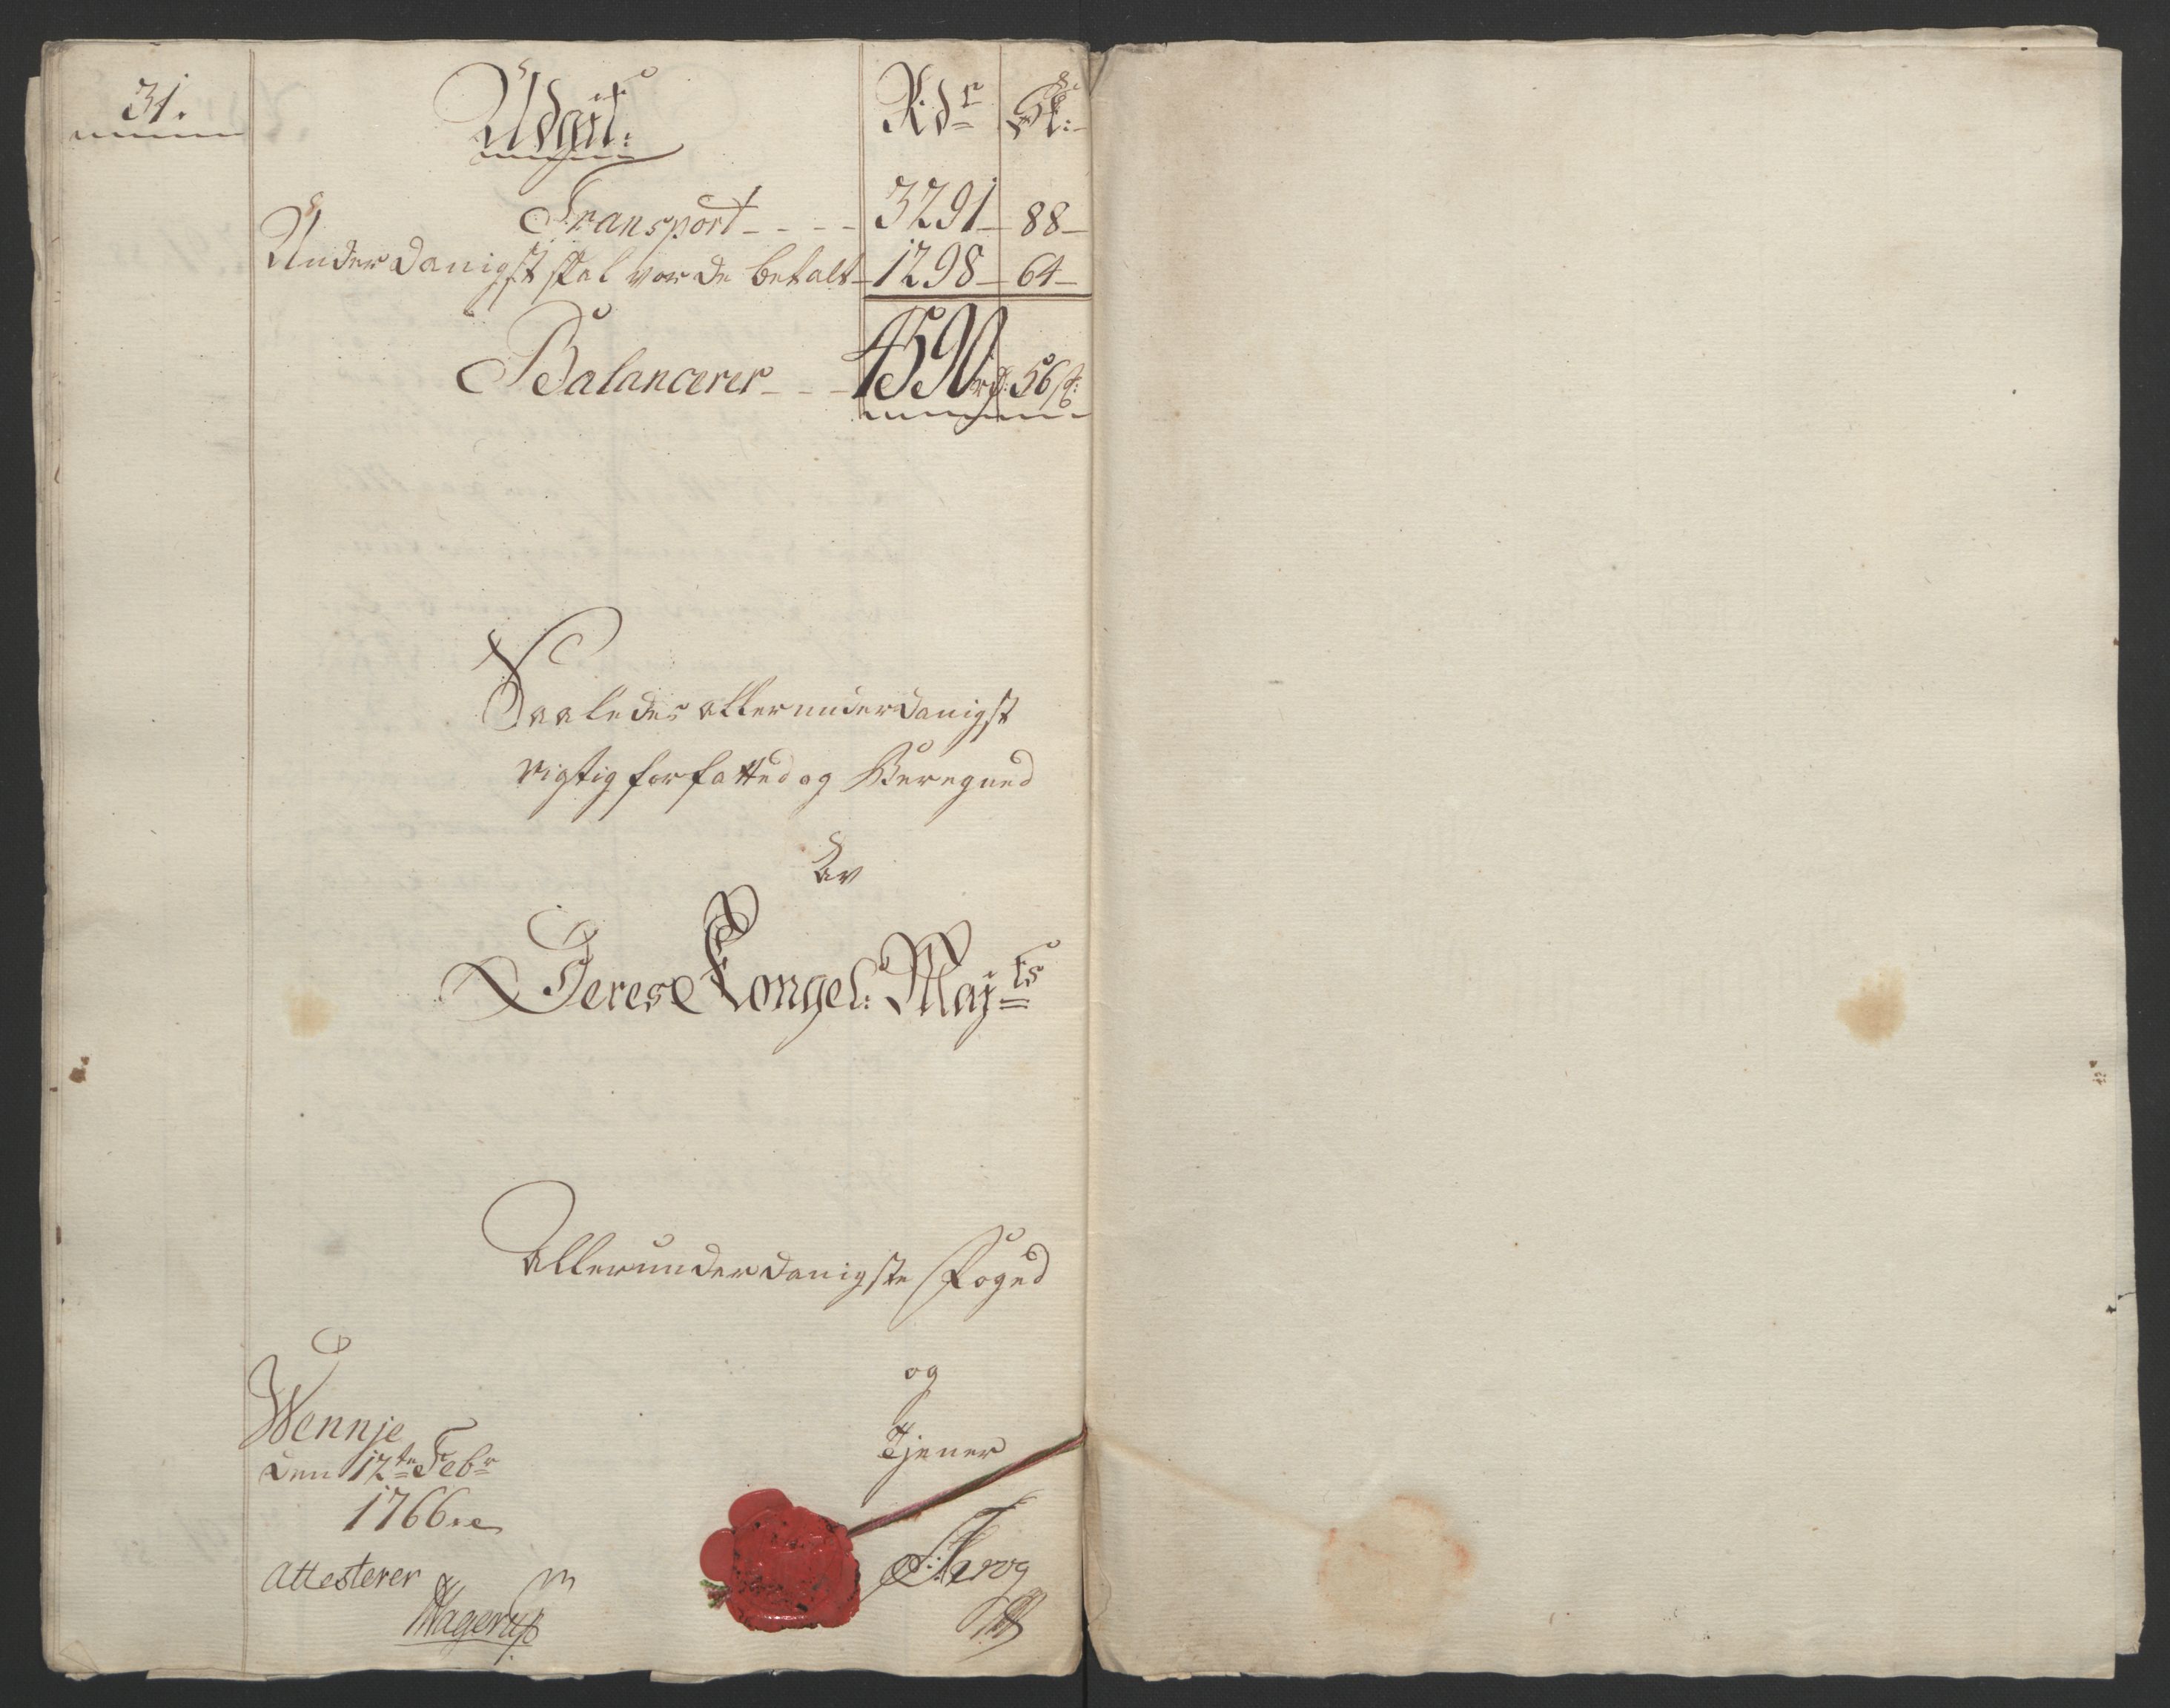 31.
Udgift: Rdr Sk:
Transport - - - - 3291 - 88 -
Underdanigst skal vorde betalt - 1298 - 64 -
Balancerer - - - 4590 rd: 56 s:
Saaledes allerunderdanigst
rigtig forfatted og Beregned
Av
Deres Kongel: Majts
Allerunderdanigste Foged
og
Tjener
Wennje
den 12te Febr
1766
Attesterer